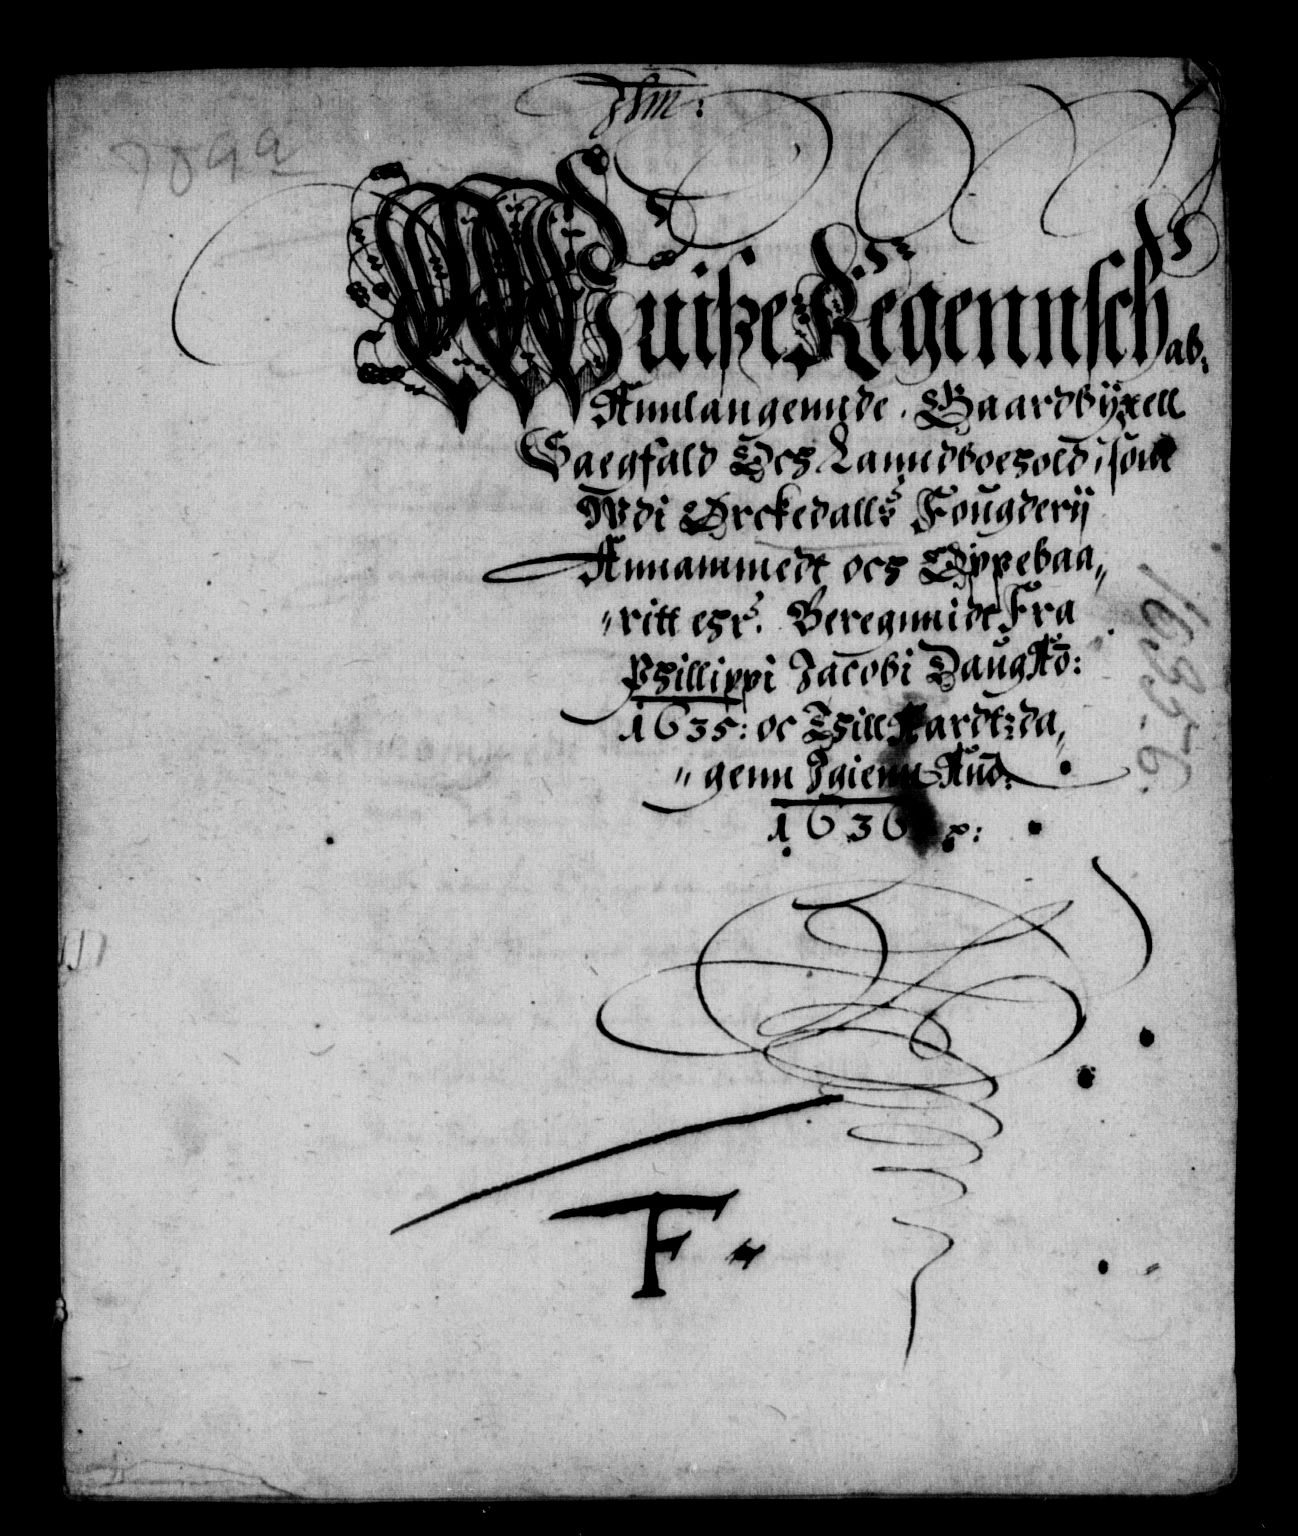 Wuiße Regennschab:
Annlangennde. Gaardbÿxell
Saegfald Och Lanndboehold, som
Wdi Ørckedalls Fougderij
Annammedt och Oppebaa„
„ritt ehr. Beregnnidt Fra
Phillippi Jacobi Daug Ao:
1635: oc Thill Aardtzda„
„genn Igienn Ano:
1636
F
1635-6.